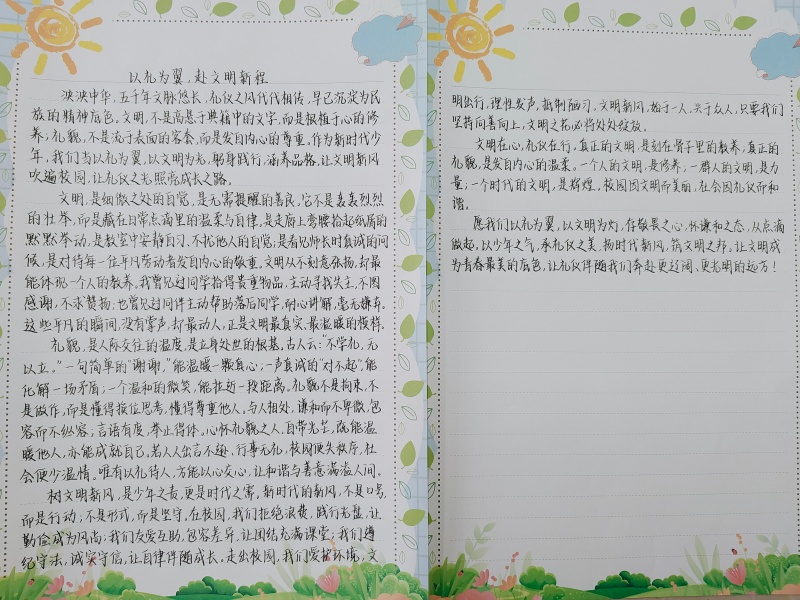 以礼为翼，赴文明新程
泱泱中华，五千年文脉悠长，礼仪之风代代相传，早已沉淀为民
族的精神底色。文明，不是高悬于典籍中的文字，而是根植于心的修
养；礼貌，不是流于表面的客套，而是发自内心的尊重。作为新时代少
年，我们当以礼为翼，以文明为光，躬身践行，涵养品格，让文明新风
吹遍校园，让礼仪之光照亮成长之路。
文明，是细微之处的自觉，是无需提醒的善良。它不是轰轰烈烈
的壮举，而是藏在日常点滴里的温柔与自律，是走廊上弯腰拾起纸屑的
默默举动，是教室中安静自习、不扰他人的自觉，是看见师长时真诚的问
候，是对待每一位平凡劳动者发自内心的敬重。文明从不刻意张扬，却最
能体现一个人的教养。我曾见过同学拾得贵重物品，主动寻找失主，不图
感谢，不求赞扬；也曾见过同伴主动帮助落后同学，耐心讲解，毫无嫌弃。
这些平凡的瞬间，没有掌声，却最动人，正是文明最真实、最温暖的模样。
礼貌，是人际交往的温度，是立身处世的根基。古人云：“不学礼，无
以立。”一句简单的“谢谢，”能温暖一颗真心；一声真诚的“对不起”，能
化解一场矛盾；一个温和的微笑，能拉近一段距离。礼貌不是拘束，不
是做作，而是懂得换位思考，懂得尊重他人。与人相处，谦和而不卑微，包
容而不纵容；言语有度，举止得体，心怀礼貌之人，自带光芒，既能温
暖他人，亦能成就自己。若人人出言不逊、行事无礼，校园便失秩序，社
会便少温情。唯有以礼待人，方能以心交心，让和谐与善意满溢人间。
树文明新风，是少年之责，更是时代之需，新时代的新风，不是口号，
而是行动；不是形式，而是坚守，在校园，我们拒绝浪费，践行光盘，让
勤俭成为风尚；我们友爱互助，包容差异，让团结充满课堂；我们遵
纪守法，诚实守信，让自律伴随成长。走出校园，我们爱护环境，文
明出行，理性发声，抵制陋习。文明新风，始于一人，兴于众人，只要我们
坚持向善向上，文明之花必将处处绽放。
文明在心，礼仪在行，真正的文明，是刻在骨子里的教养，真正的
礼貌，是发自内心的温柔。一个人的文明，是修养，一群人的文明，是力
量；一个时代的文明，是辉煌。校园因文明而美丽，社会因礼仪而和
谐。
愿我们以礼为翼，以文明为灯，存敬畏之心，怀谦和之态，从点滴
做起，以少年之气，承礼仪之美，扬时代新风，筑文明之邦，让文明成
为青春最美的底色，让礼仪伴随我们奔赴更辽阔、更光明的远方！